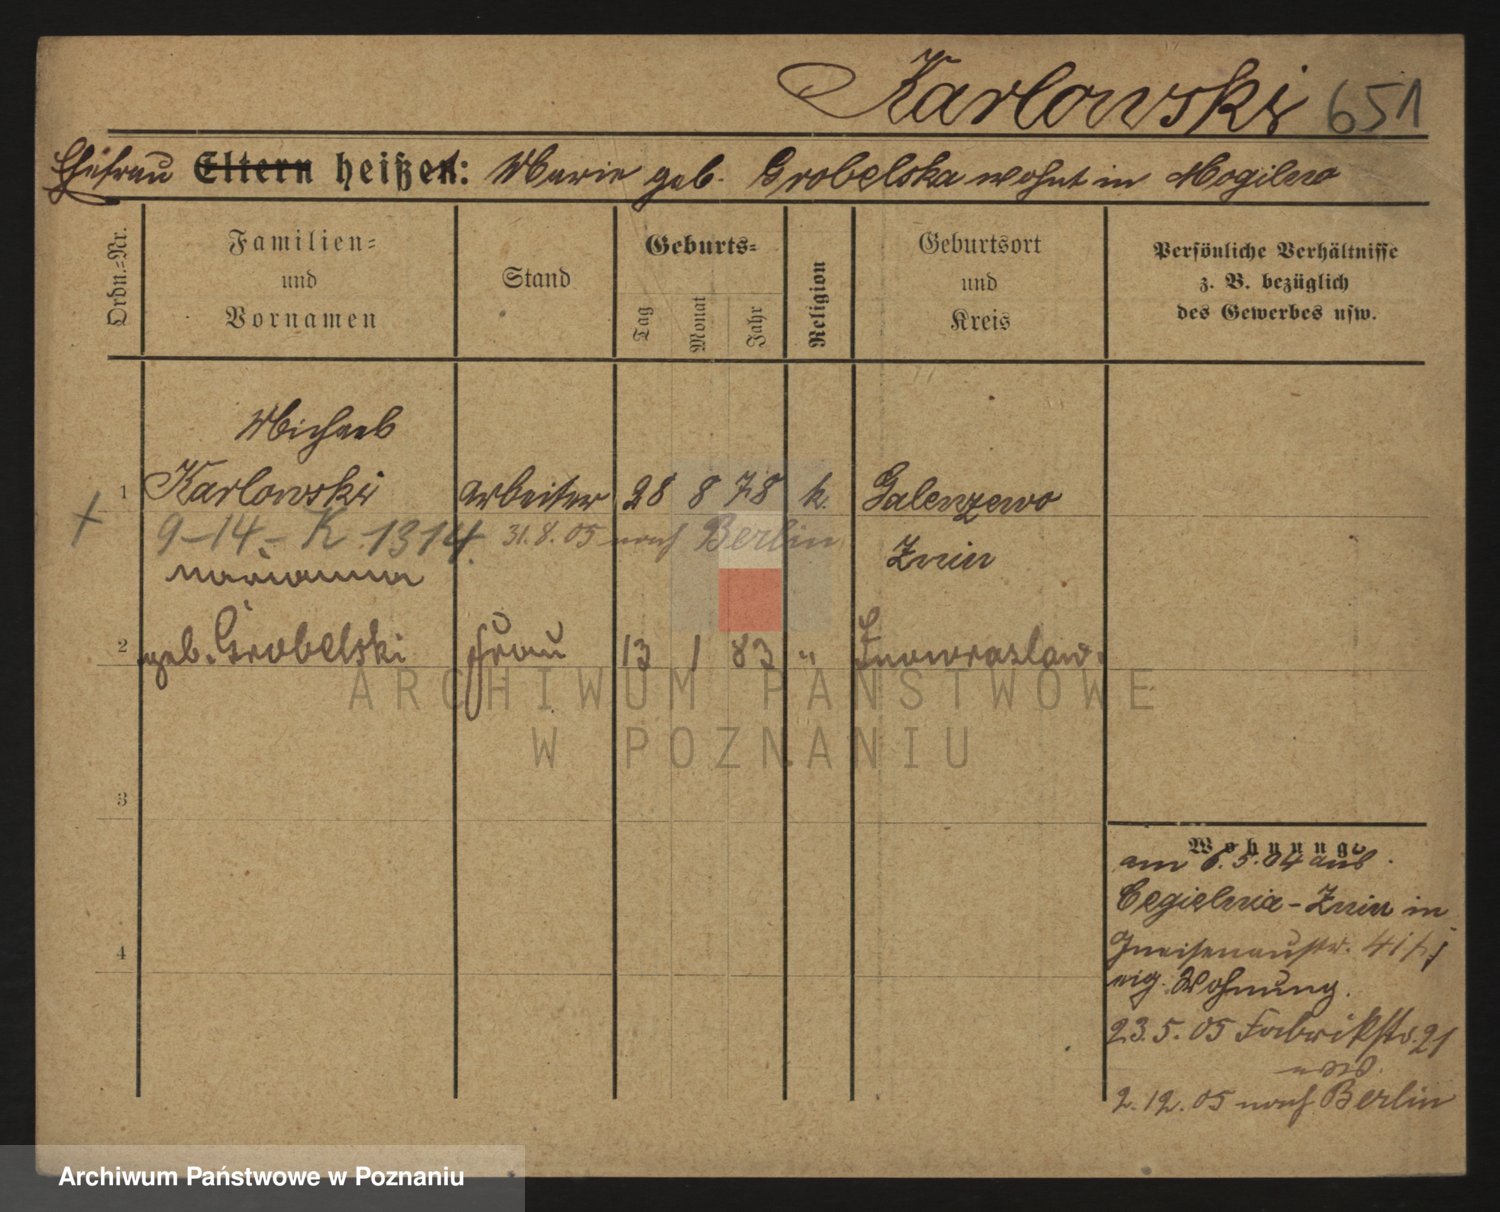 Karlowski 651
Ehefrau Eltern heißen: Marie geb. Grobelska wohnt in Mogilno
Ordn.=Nr.
Familien=
und
Vornamen
Stand
Geburts=
Tag
Monat
Jahr
Religion
Geburtsort
und
Kreis
Persönliche Verhältnisse
z. B. bezüglich
des Gewerbes usw.
Michael
1 Karlowski Arbeiter 28 8 78 k. Galenzewo
9-14.- K. 1314. 31.8.05 nach Berlin Znin
Marianna
2 geb. Grobelski Frau 13 1 83 " Inowrazlaw.
3
4
Wohnung
am 6.5.04 aus
Cegielnia - Znin in
Gneisenaustr. 4
eig. Wohnung.
23.5.05 Fabrikstr. 21
2.12.05 nach Berlin
ARCHIWUM PAŃSTWOWE
W POZNANIU
Archiwum Państwowe w Poznaniu